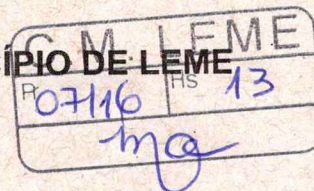 C. M. LEME
ÍPIO DE LEME
Pr 07/16 FIS 13